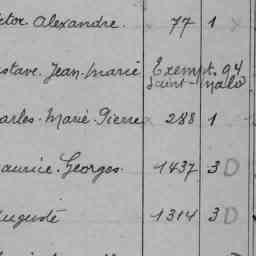 ctor Alexandre. 77 1
ustave. Jean. Marie Exempt. 94
Saint-Malo
arles. Marie. Pierre 288 1
aurice. Georges. 1437 3 D
uguste 1314 3 D